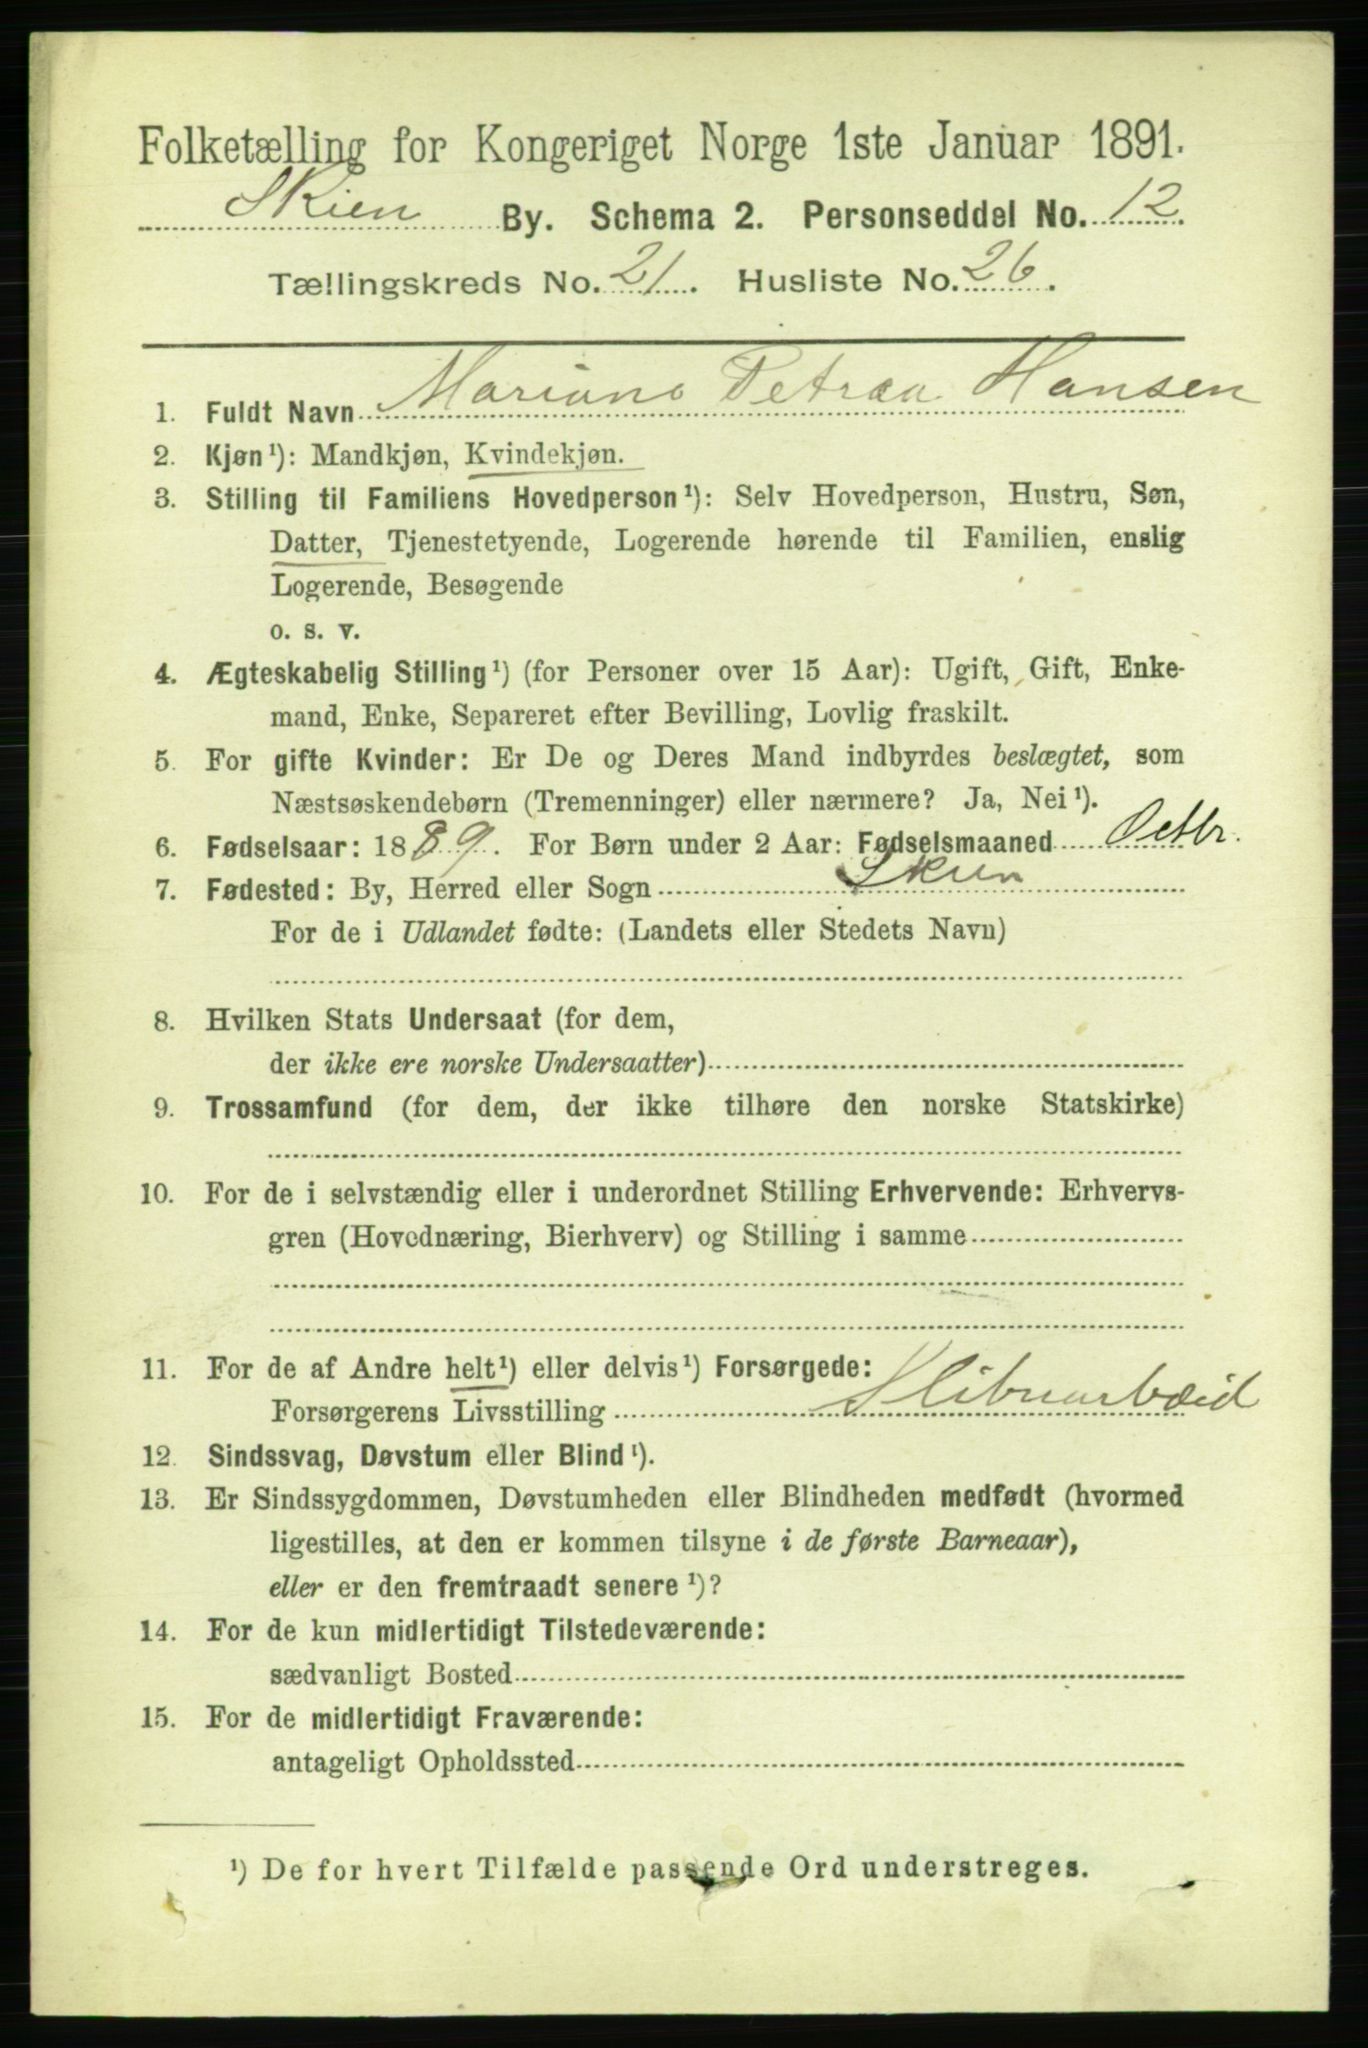 Folketælling for Kongeriget Norge 1ste Januar 1891.
Skien By. Schema 2. Personseddel No. 12.
Tællingskreds No. 21. Husliste No. 26.
1. Fuldt Navn Mariane Petrea Hansen
2. Kjøn¹): Mandkjøn, Kvindekjøn.
3. Stilling til Familiens Hovedperson¹): Selv Hovedperson, Hustru, Søn,
Datter, Tjenestetyende, Logerende hørende til Familien, enslig
Logerende, Besøgende
o. s. v.
4. Ægteskabelig Stilling¹) (for Personer over 15 Aar): Ugift, Gift, Enke-
mand, Enke, Separeret efter Bevilling, Lovlig fraskilt.
5. For gifte Kvinder: Er De og Deres Mand indbyrdes beslægtet, som
Næstsøskendebørn (Tremenninger) eller nærmere? Ja, Nei¹).
6. Fødselsaar: 1889. For Børn under 2 Aar: Fødselsmaaned Octbr.
7. Fødested: By, Herred eller Sogn Skien
For de i Udlandet fødte: (Landets eller Stedets Navn)
8. Hvilken Stats Undersaat (for dem,
der ikke ere norske Undersaatter)
9. Trossamfund (for dem, der ikke tilhøre den norske Statskirke)
10. For de i selvstændig eller i underordnet Stilling Erhvervende: Erhvervs-
gren (Hovednæring, Bierhverv) og Stilling i samme
11. For de af Andre helt¹) eller delvis¹) Forsørgede:
Forsørgerens Livsstilling Slibriarbeid
12. Sindssvag, Døvstum eller Blind¹).
13. Er Sindssygdommen, Døvstumheden eller Blindheden medfødt (hvormed
ligestilles, at den er kommen tilsyne i de første Barneaar),
eller er den fremtraadt senere¹)?
14. For de kun midlertidigt Tilstedeværende:
sædvanligt Bosted
15. For de midlertidigt Fraværende:
antageligt Opholdssted
¹) De for hvert Tilfælde passende Ord understreges.